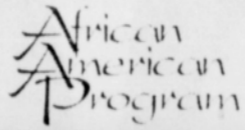 African
American
Program